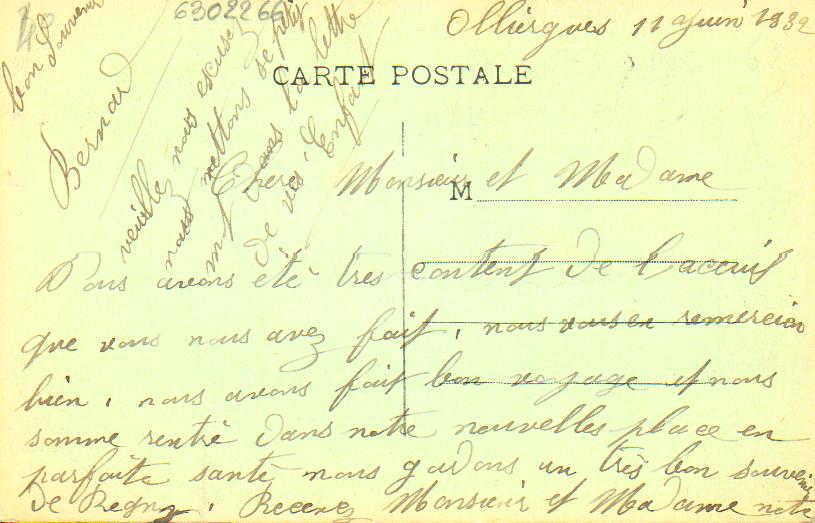 Olliergues 11 Juin 1932
6302266
CARTE POSTALE
M
Chers Monsieur et Madame
Nous avons été très content de l'aceuil
que vous nous avez fait, nous vous en remercion
bien, nous avons fait bon voyage et nous
somme rentré dans notre nouvelles place en
parfaite santé nous gadons un très bon souvenir
de Regny, Recevez Monsieur et Madame notre
bon Souvenir
Bernard
veuillez nous escusez
nous mettons se petit
mt dans la lettre
de vos Enfant